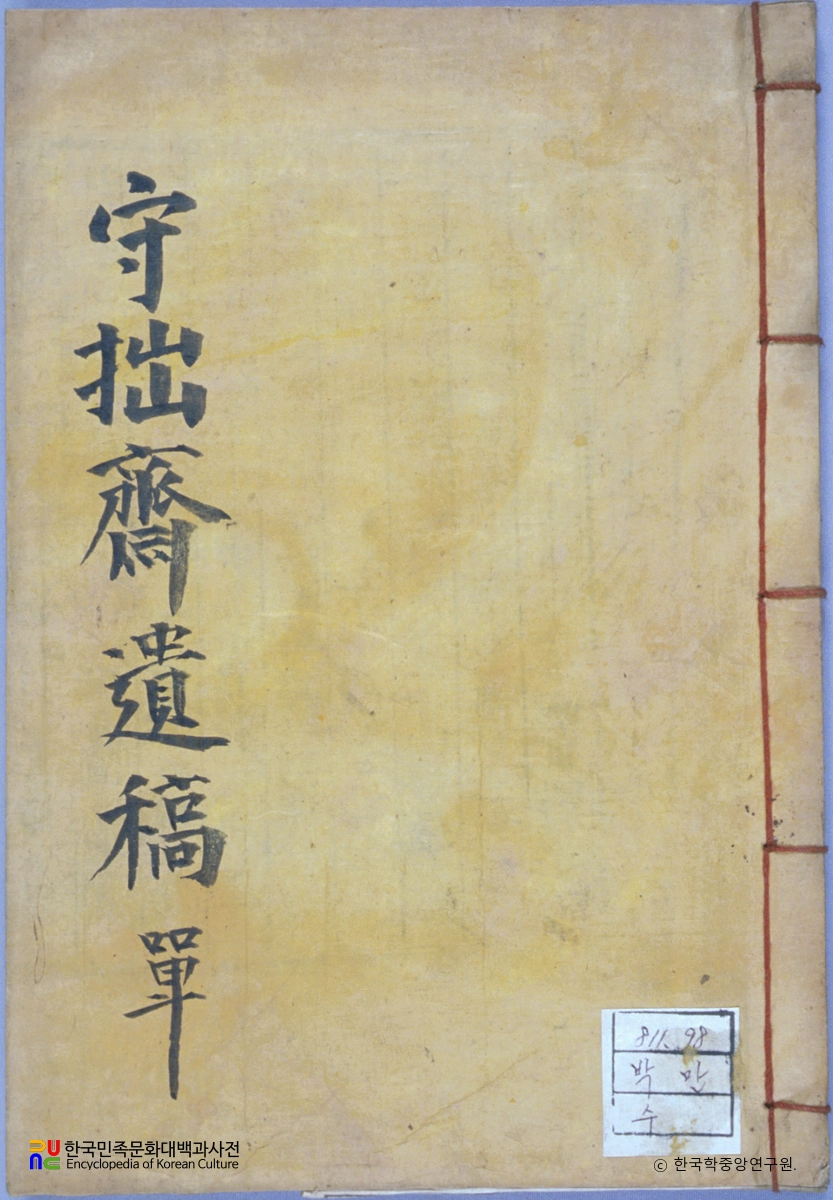 守拙齋遺稿 單
811.98
박
수
한국민족문화대백과사전
Encyclopedia of Korean Culture
ⓒ 한국학중앙연구원.